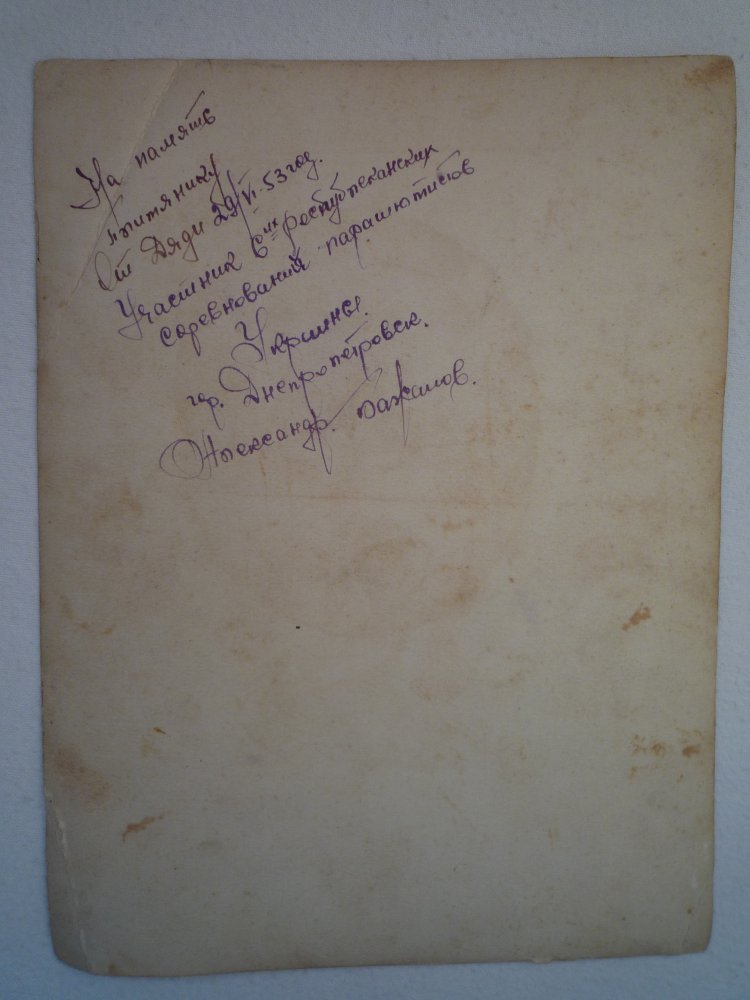 На память
От Дяди 29/VI-53 год.
Участник 6их республиканских
соревнований парашютистов
Украины.
гор. Днепропетровск.
Александр.